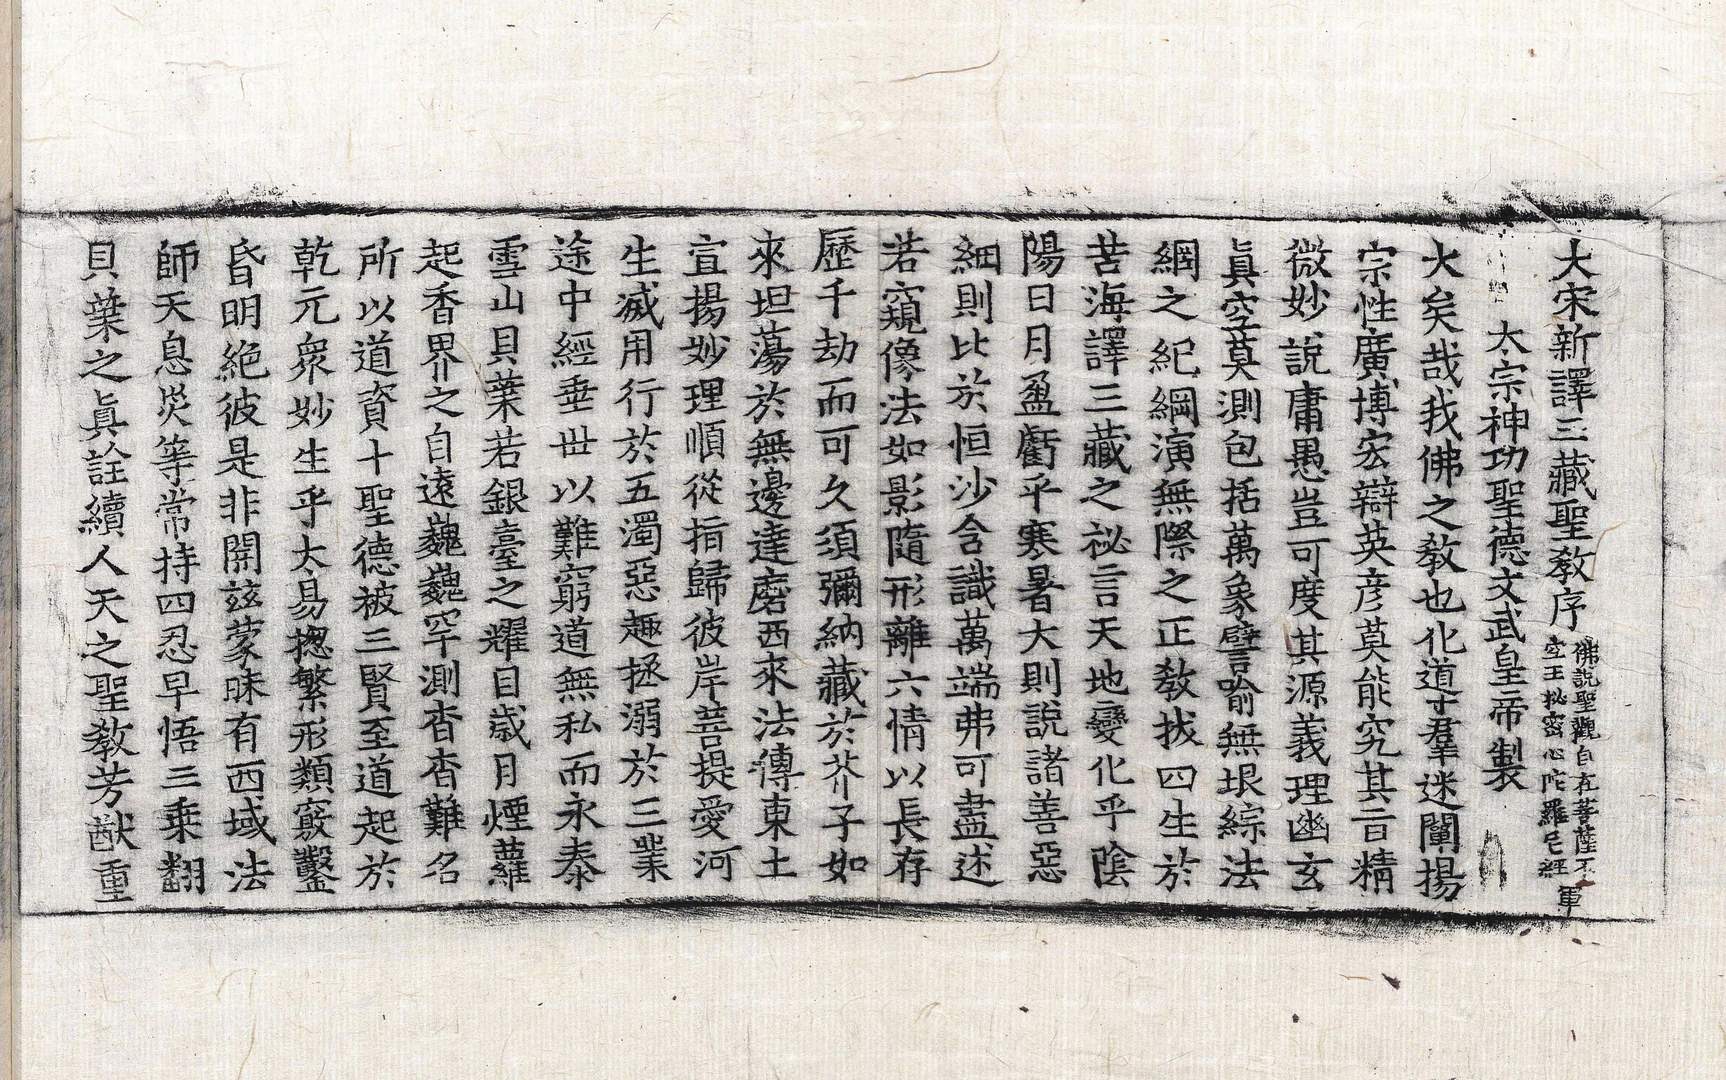 大宋新譯三藏聖教序 佛說聖觀自在菩薩不
空王秘密心陀羅尼經 軍
太宗神功聖德文武皇帝製
大矣哉我佛之教也化導羣迷闡揚
宗性廣博宏辯英彦莫能究其旨精
微妙說庸愚豈可度其源義理幽玄
眞空莫測包括萬象譬喻無垠綜法
網之紀綱演無際之正教拔四生於
苦海譯三藏之祕言天地變化乎陰
陽日月盈虧乎寒暑大則說諸善惡
細則比於恒沙含識萬端弗可盡述
若窺像法如影隨形離六情以長存
歷千劫而可久須彌納藏於芥子如
來坦蕩於無邊達磨西來法傳東土
宣揚妙理順從指歸彼岸菩提愛河
生滅用行於五濁惡趣拯溺於三業
途中經垂世以難窮道無私而永泰
雪山貝葉若銀臺之耀目歲月煙蘿
起香界之自遠巍巍罕測杳杳難名
所以道資十聖德被三賢至道起於
乾元衆妙生乎太易揔繁形類竅鑿
昏明絶彼是非開玆蒙昧有西域法
師天息災等常持四忍早悟三乘翻
貝葉之眞詮續人天之聖教芳猷重